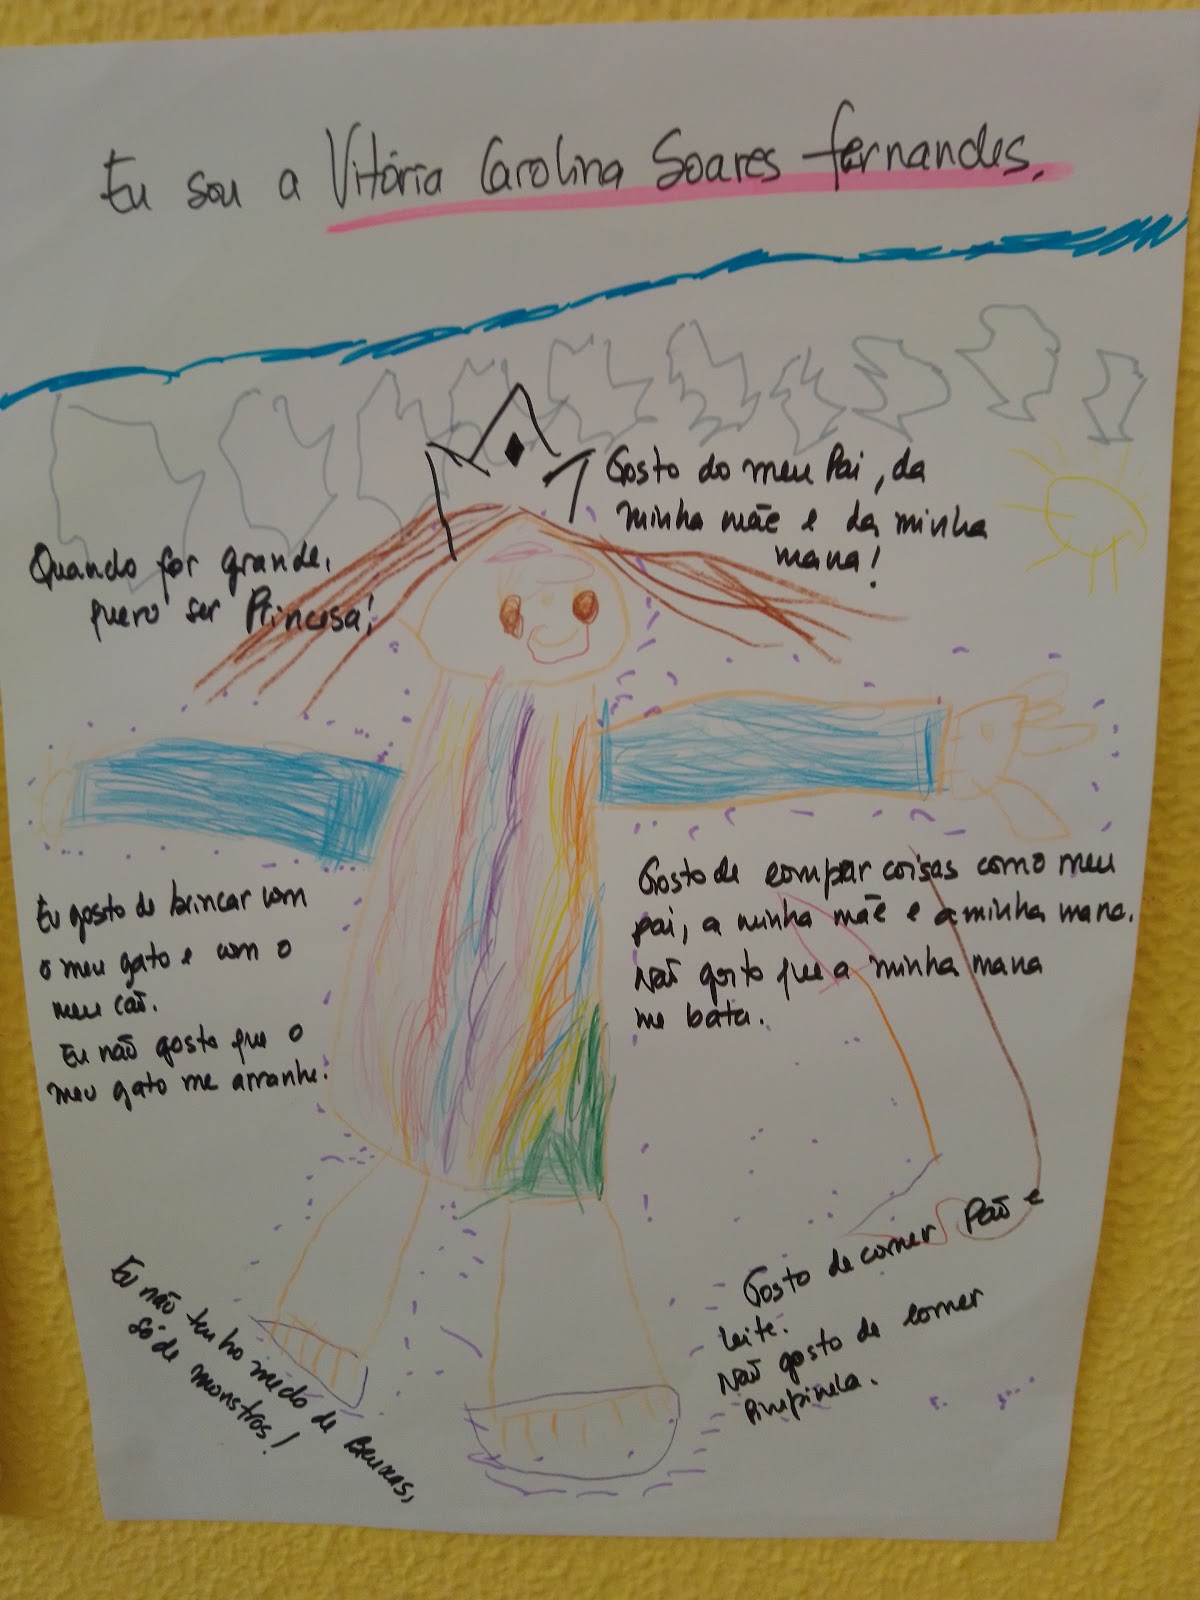 Eu sou a Vitória Carolina Soares Fernandes.
Gosto do meu Pai, da
minha mãe e da minha
mana!
Quando for grande,
quero ser Princesa!
Eu gosto de brincar com
o meu gato e com o
meu cão.
Eu não gosto que o
meu gato me arranhe.
Gosto de compar coisas como meu
pai, a minha mãe e a minha mana.
Não gosto que a minha mana
me bata.
Eu não tenho medo de Bruxas,
só de monstros!
Gosto de comer Pão e
leite.
Não gosto de comer
Pimpinela.